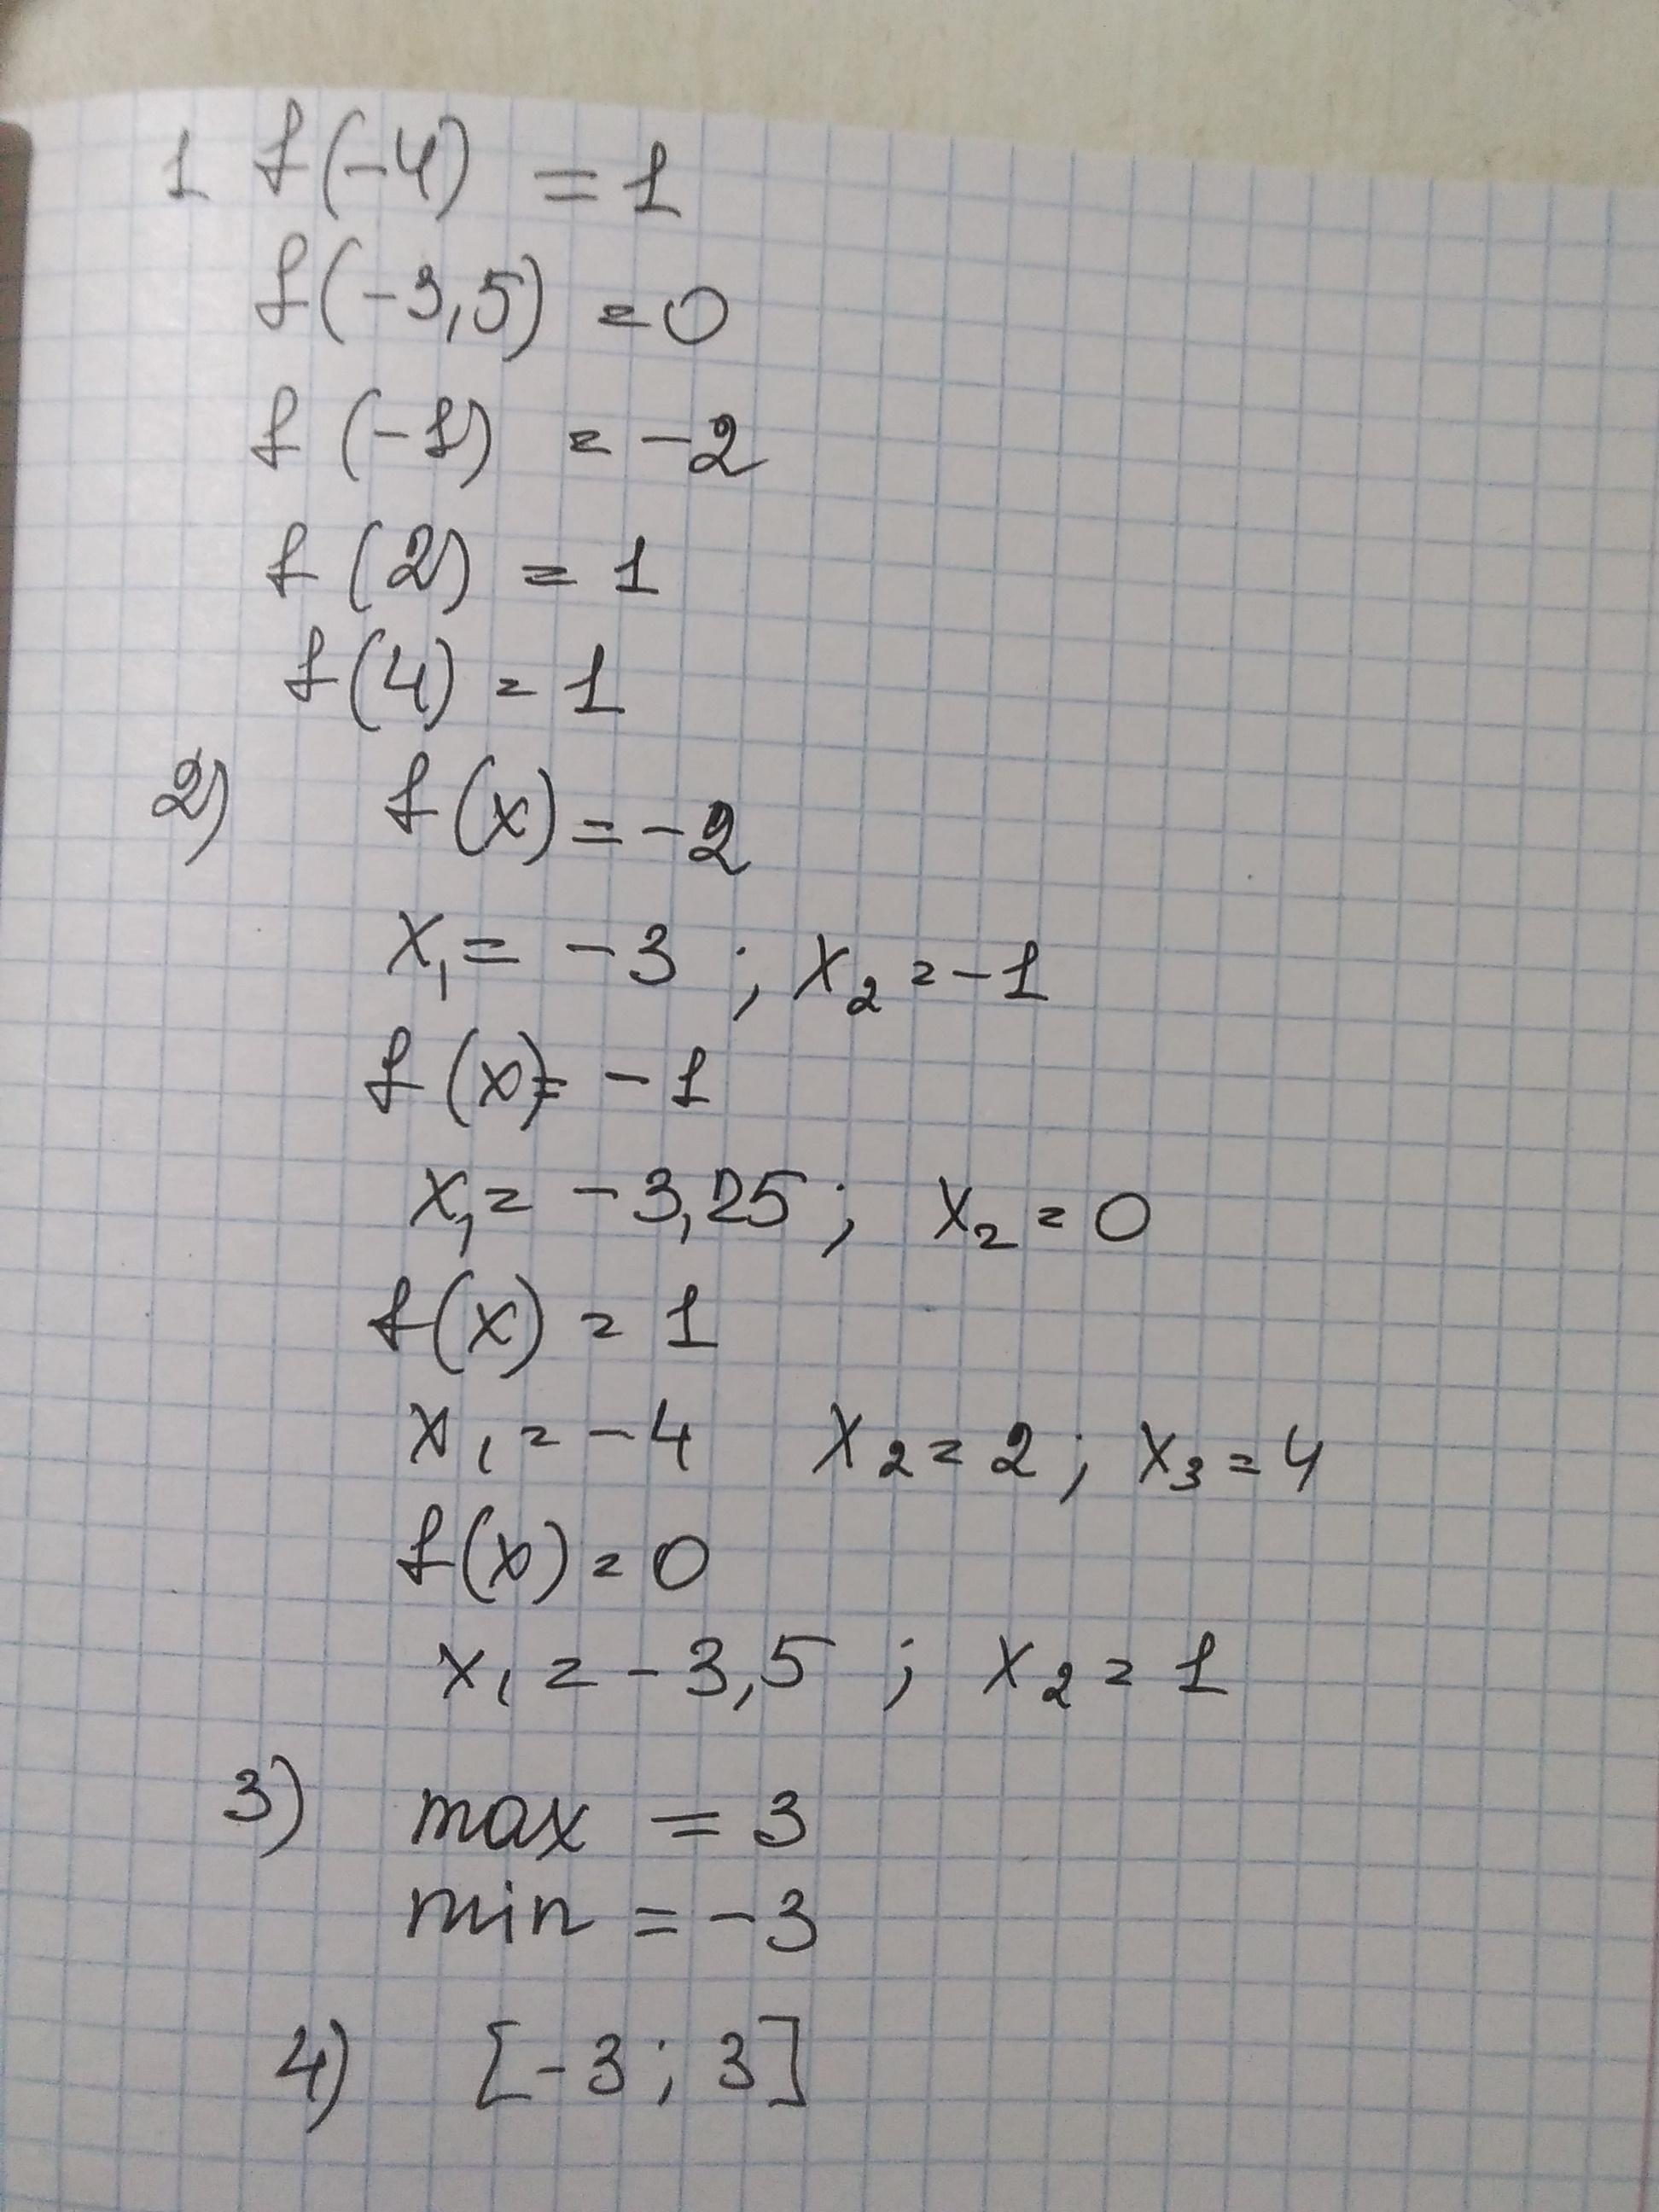 1 f(-4) = 1
f(-3,5) = 0
f(-1) = -2
f(2) = 1
f(4) = 1
2) f(x) = -2
x₁ = -3 ; x₂ = -1
f(x) = -1
x₁ = -3,25 ; x₂ = 0
f(x) = 1
x₁ = -4 x₂ = 2 ; x₃ = 4
f(x) = 0
x₁ = -3,5 ; x₂ = 1
3) max = 3
min = -3
4) [-3 ; 3]